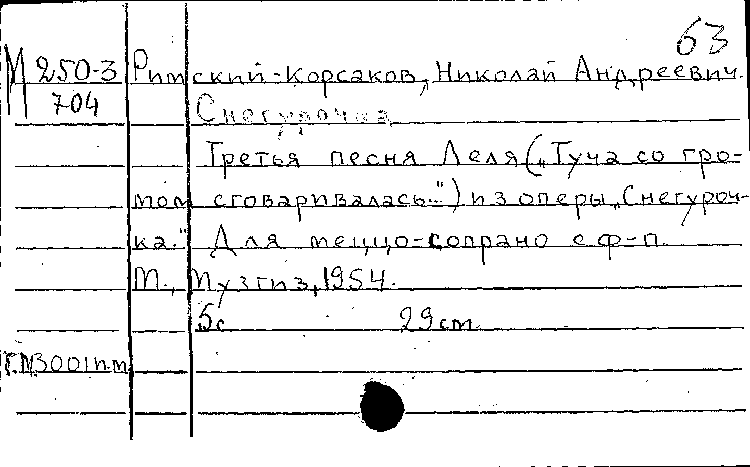 63
М 250-3 Римский-Корсаков, Николай Андреевич.
704 Снегурочка
Третья песня Леля („Туча со гро-
мом сговаривалась..") из оперы „Снегуроч-
ка." Для меццо-сопрано с ф-п.
М., Музгиз, 1954.
5с 29 cm